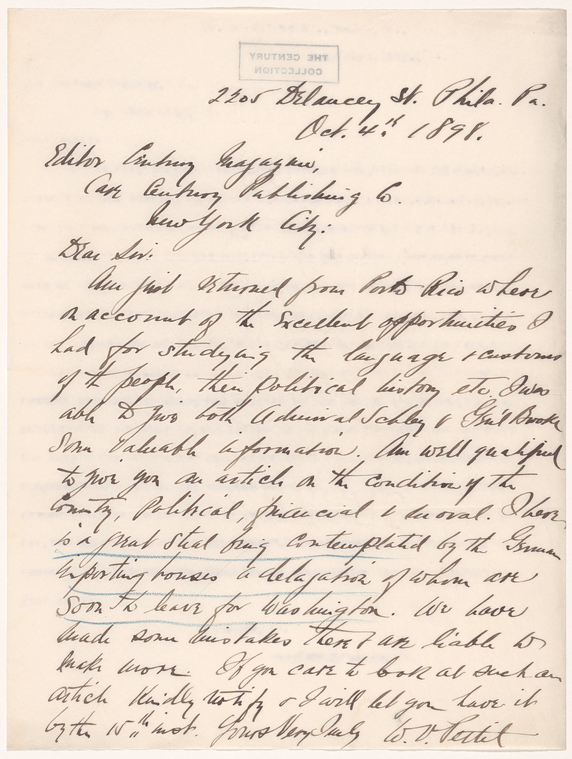 THE CENTURY
COLLECTION
2205 Delancey St. Phila. Pa.
Oct. 4th 1898.
Editor Century Magazine,
Care Century Publishing Co.
New York City:
Dear Sir:
Am just returned from Porto Rico where
on account of the Excellent opportunities I
had for studying the language & customs
of the people, their political history etc, I was
able to give both Admiral Schley & Gen'l Brooke
some valuable information. Am well qualified
to give you an article on the condition of the
Country, Political, financial & moral. There
is a great steal being contemplated by the German
exporting houses a delegation of whom are
soon to leave for Washington. We have
made some mistakes there & are liable to
make more. If you care to look at such an
article Kindly notify & I will let you have it
by the 15th inst. Yours Very Truly W. V. Pettit